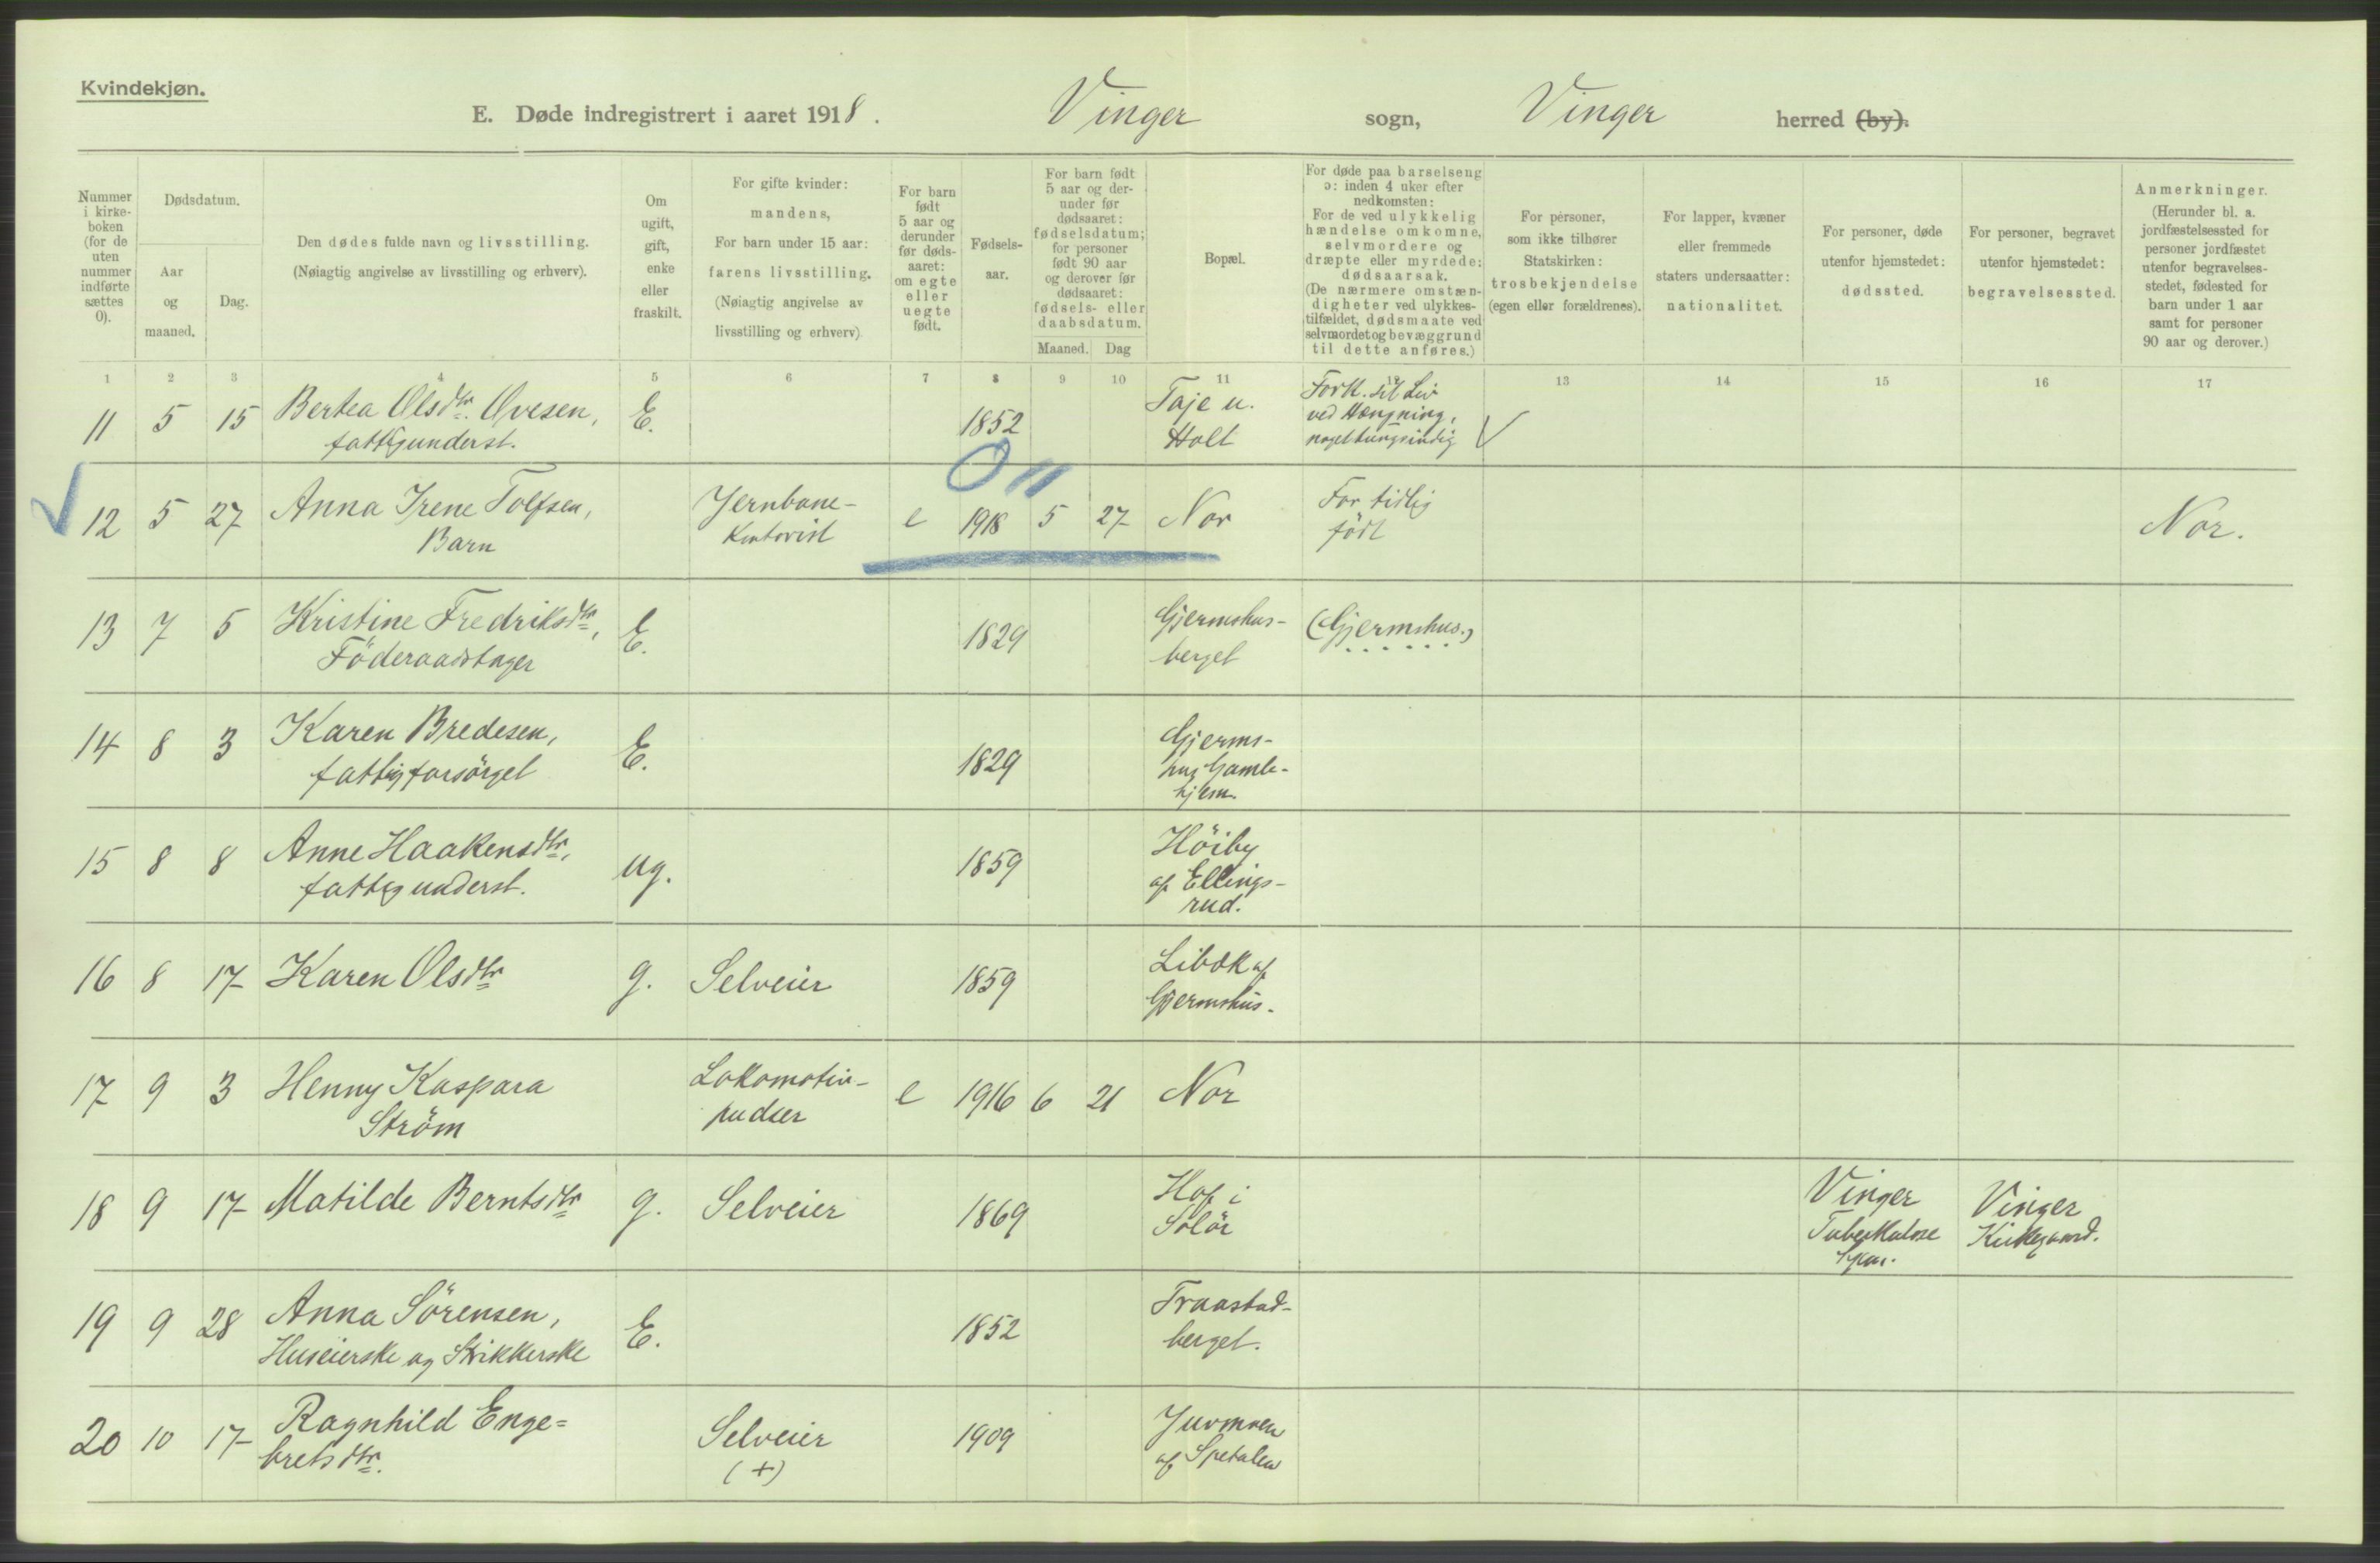 Kvindekjøn.
E. Døde indregistrert i aaret 1918. Vinger sogn, Vinger herred (by).
Nummer i kirkeboken (for de uten nummer indførte sættes 0).
Dødsdatum.
Aar og maaned.
Dag.
Den dødes fulde navn og livsstilling.
(Nøiagtig angivelse av livsstilling og erhverv).
Om ugift, gift, enke eller fraskilt.
For gifte kvinder: mandens,
For barn under 15 aar: farens livsstilling.
(Nøiagtig angivelse av livsstilling og erhverv)
For barn født 5 aar og derunder før dødsaaret: om egte eller uegte født.
Fødselsaar.
For barn født 5 aar og derunder før dødsaaret: fødselsdatum; for personer født 90 aar og derover før dødsaaret: fødsels- eller daabsdatum.
Maaned. Dag
Bopæl.
For døde paa barselseng ɔ: inden 4 uker efter nedkomsten:
For de ved ulykkelig hændelse omkomne, selvmordere og dræpte eller myrdede: dødsaarsak.
(De nærmere omstændigheter ved ulykkestilfældet, dødsmaate ved selvmordet og bevæggrund til dette anføres.)
For personer, som ikke tilhører Statskirken: trosbekjendelse (egen eller forældrenes).
For lapper, kvæner eller fremmede staters undersaatter: nationalitet.
For personer, døde utenfor hjemstedet: dødssted.
For personer, begravet utenfor hjemstedet: begravelsessted.
Anmerkninger.
(Herunder bl. a. jordfæstelsessted for personer jordfæstet utenfor begravelsesstedet, fødested for barn under 1 aar samt for personer 90 aar og derover.)
1 2 3 4 5 6 7 8 9 10 11 12 13 14 15 16 17
11 5 15 Bertea Olsdtr. Ovesen, E. 1852 Taje u. Fork. sit Liv
fattigunderst. Holt ved Hængning,
noget tungsindig
12 5 27 Anna Irene Tolfsen, Jernbane- e 1918 5 27 Nor For tidlig Nor.
Barn Kontorist født
13 7 5 Kristine Fredriksdtr, E. 1829 Gjermshus- (Gjermshus.)
Föderaadstager berget
14 8 3 Karen Bredesen, E. 1829 Gjerms-
fattigforsörget hus Gamle-
hjem.
15 8 8 Anne Haakensdtr, ug. 1859 Höiby
fattigunderst. af Ellings-
rud.
16 8 17 Karen Olsdtr g. Selveier 1859 af
Gjermshus.
17 9 3 Henny Kaspara Lokomotiv- e 1916 6 21 Nor
Ström pudser
18 9 17 Matilde Berntsdtr g. Selveier 1869 Hof i Vinger Vinger
Solör Tuberkulose Kirkegaard.
19 9 28 Anna Sörensen, E. 1852 Traastad-
Huseierske og Strikkerske berget.
20 10 17 Ragnhild Enge= Selveier 1909
bretsdtr. (+) af Spetalen
O 11